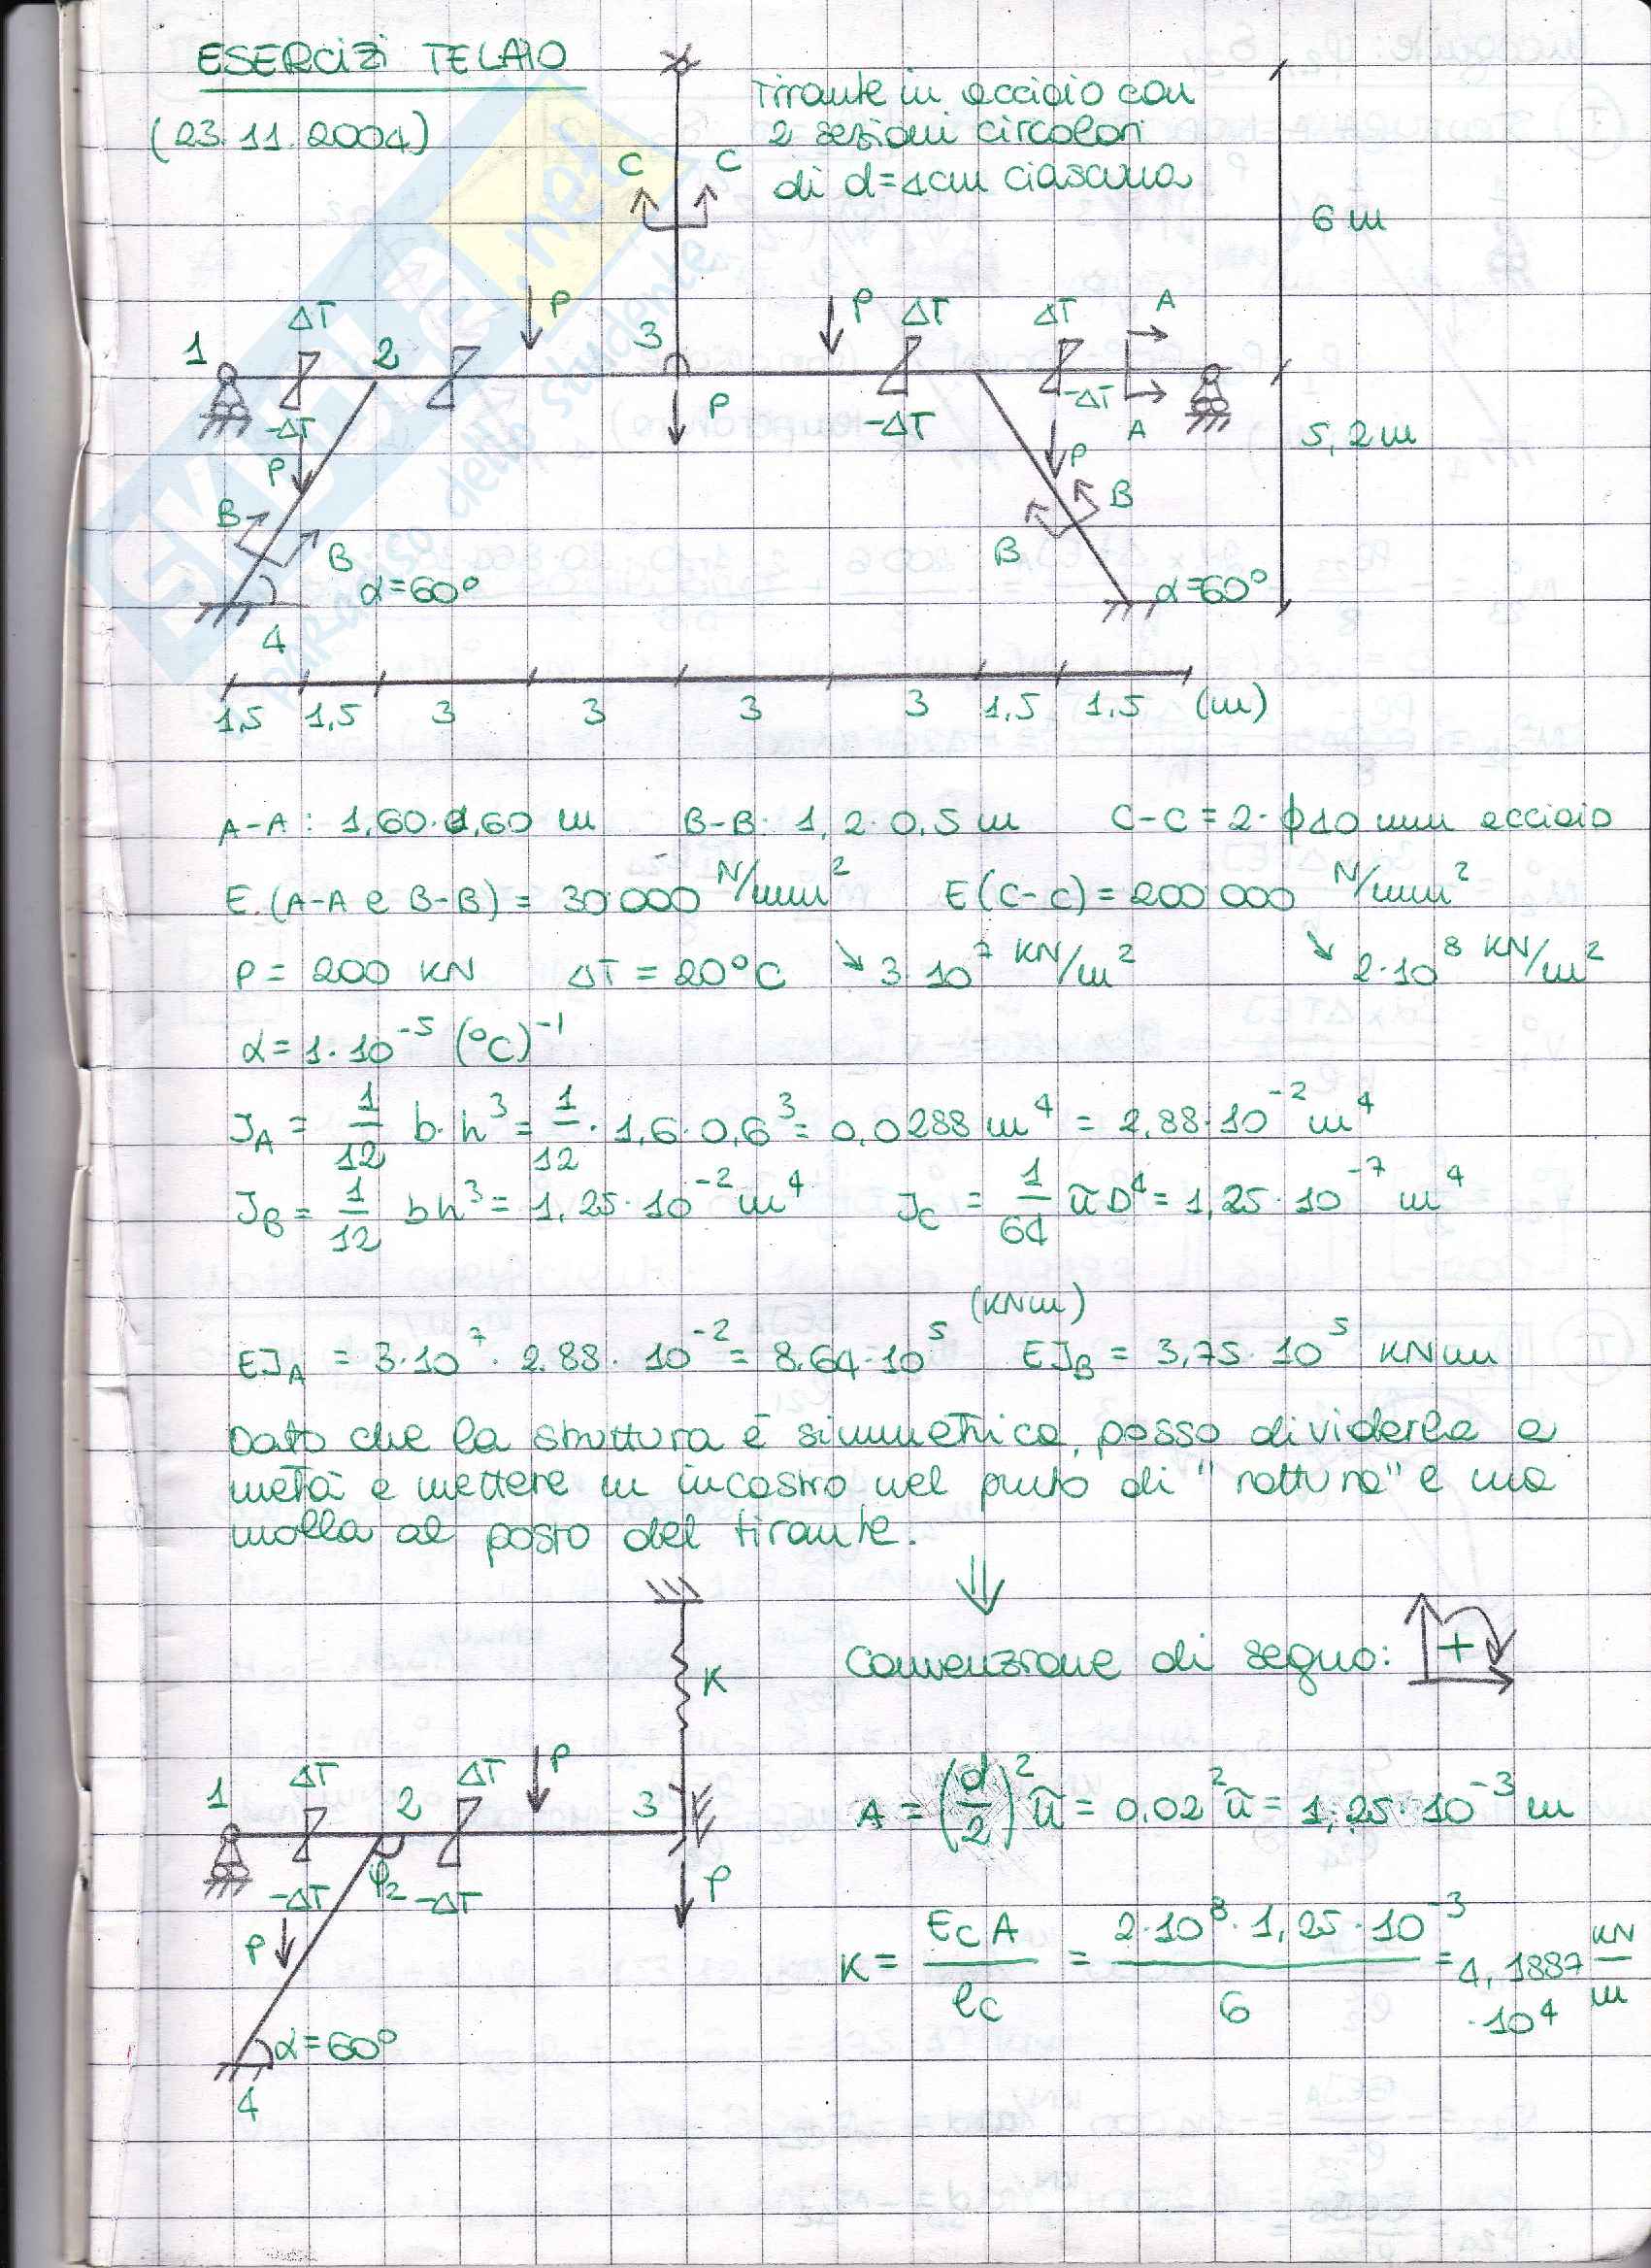 ESERCIZI TELAIO
(23.11.2004)
Tirante in acciaio con
2 sezioni circolari
di d=1cm ciascuna
C C
6 m
1 ΔT 2 P 3 P ΔT ΔT A
-ΔT P -ΔT -ΔT A
5,2 m
P P
B B
B α=60° B α=60°
4
1,5 1,5 3 3 3 3 1,5 1,5 (m)
A-A: 1,60·0,60 m B-B: 1,2·0,5 m C-C = 2·ϕ10 mm acciaio
E (A-A e B-B) = 30'000 N/mm² E(C-C) = 200'000 N/mm²
P = 200 KN ΔT = 20°C ↘ 3·10⁷ KN/m² ↘ 2·10⁸ KN/m²
α = 1·10⁻⁵ (°C)⁻¹
J_A = 1/12 b·h³ = 1/12 · 1,6·0,6³ = 0,0288 m⁴ = 2,88·10⁻² m⁴
J_B = 1/12 bh³ = 1,25·10⁻² m⁴ J_C = 1/64 π D⁴ = 1,25·10⁻⁷ m⁴
(KNm)
EJ_A = 3·10⁷ · 2.88·10⁻² = 8.64·10⁵ EJ_B = 3,75·10⁵ KNm
Dato che la struttura è simmetrica, posso dividerla a
metà e mettere un incastro nel punto di "rottura" e una
molla al posto del tirante.
⇓
Convenzione di segno: +
K
1 ΔT 2 ΔT P 3
-ΔT φ₂ -ΔT P
P
α=60°
4
A = (d/2)² π = 0.02² π = 1,25·10⁻³ m
K = E_C A / l_C = 2·10⁸ · 1,25·10⁻³ / 6 = 4,1887 · 10⁴ KN/m
SKUOLA.net
paradiso dello studente